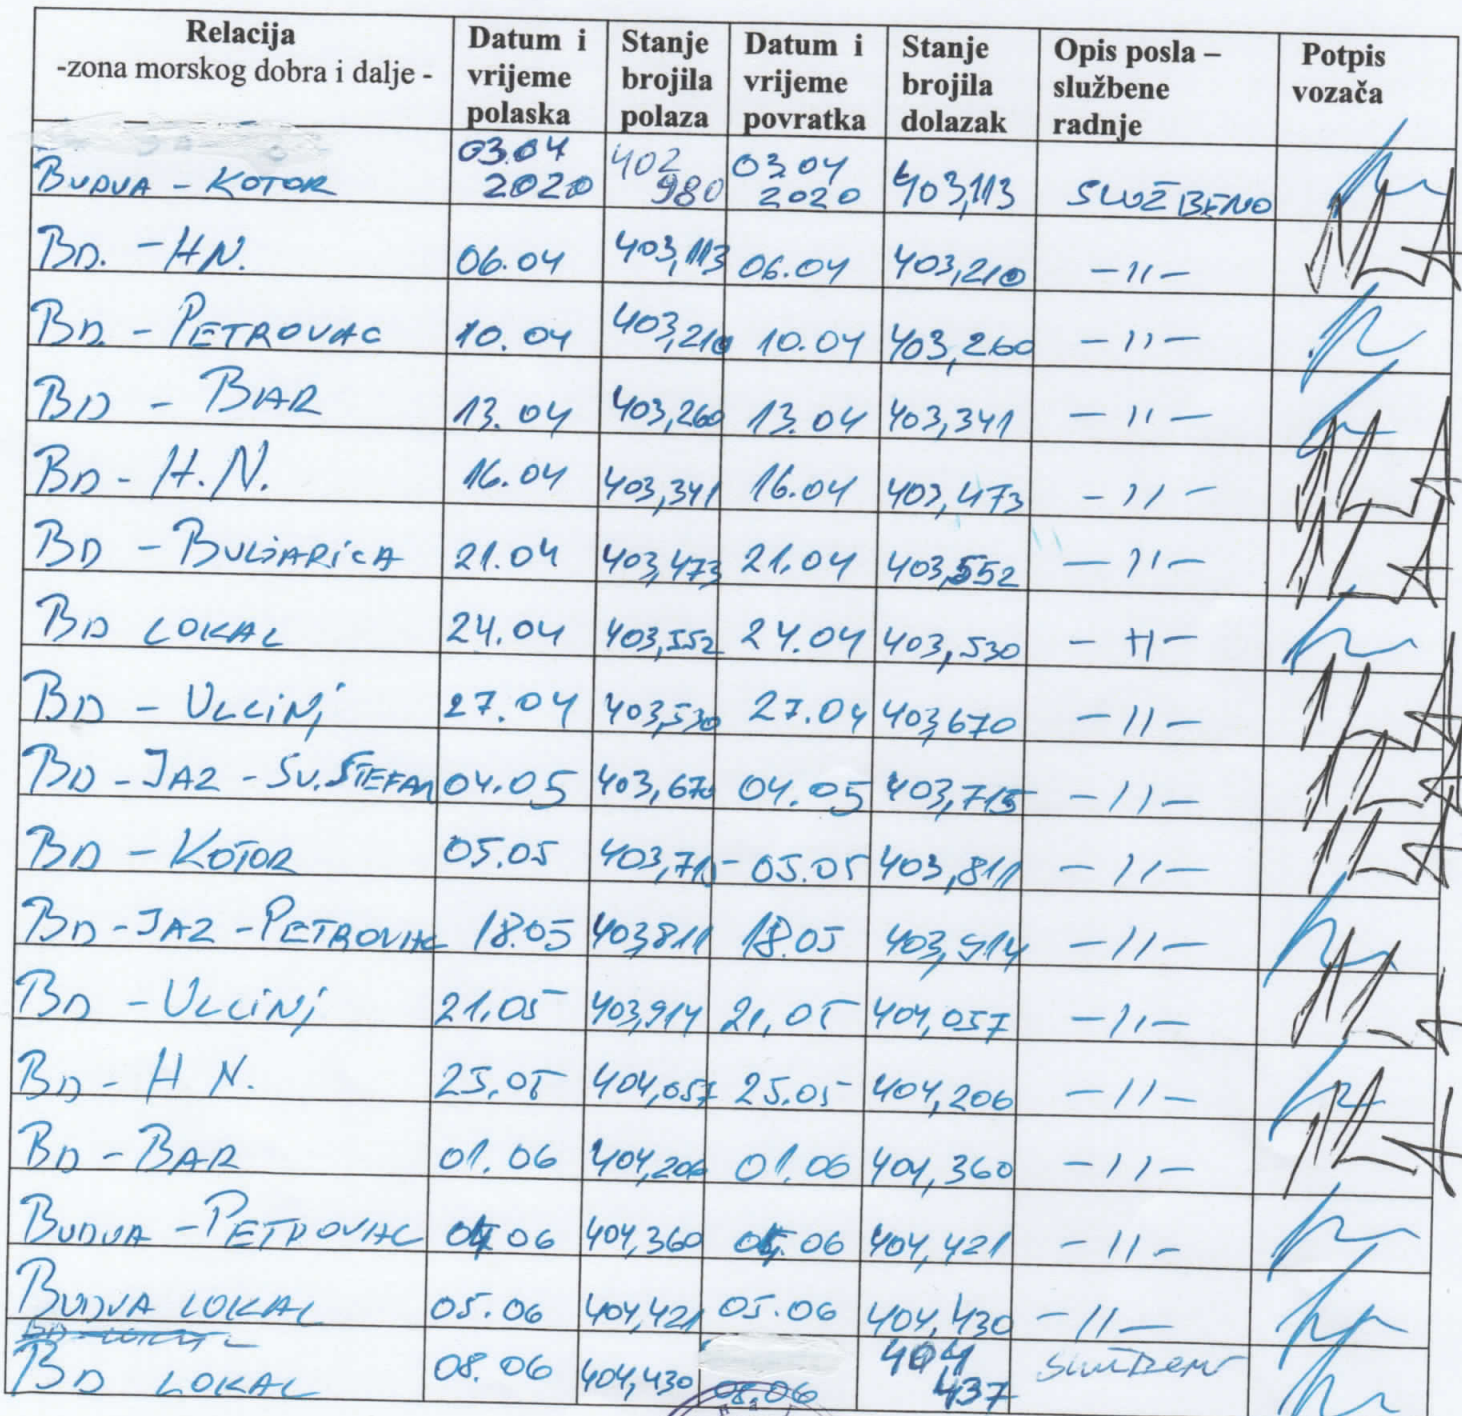 Relacija
-zona morskog dobra i dalje -
Datum i
vrijeme
polaska
Stanje
brojila
polaza
Datum i
vrijeme
povratka
Stanje
brojila
dolazak
Opis posla –
službene
radnje
Potpis
vozača
BUDVA - KOTOR 03.04 2020 402 980 03.04 2020 403,113 SLUŽBENO
BD. - H.N. 06.04 403,113 06.04 403,210 -11-
BD. - PETROVAC 10.04 403,210 10.04 403,260 -11-
BD - BAR 13.04 403,260 13.04 403,341 -11-
BD - H.N. 16.04 403,341 16.04 403,473 -11-
BD - BULJARICA 21.04 403,473 21.04 403,552 -11-
BD LOKAL 24.04 403,552 24.04 403,530 -11-
BD - ULCINJ 27.04 403,530 27.04 403,670 -11-
BD - JAZ - SV. STEFAN 04.05 403,670 04.05 403,715 -11-
BD - KOTOR 05.05 403,715 05.05 403,811 -11-
BD - JAZ - PETROVAC 18.05 403811 18.05 403,914 -11-
BD - ULCINJ 21.05 403,914 21.05 404,057 -11-
BD - H N. 25.05 404,057 25.05 404,206 -11-
BD - BAR 01.06 404,206 01.06 404,360 -11-
BUDVA - PETROVAC 04.06 404,360 04.06 404,421 -11-
BUDVA LOKAL 05.06 404,421 05.06 404,430 -11-
BD LOKAL 08.06 404,430 08.06 404 437 službeno